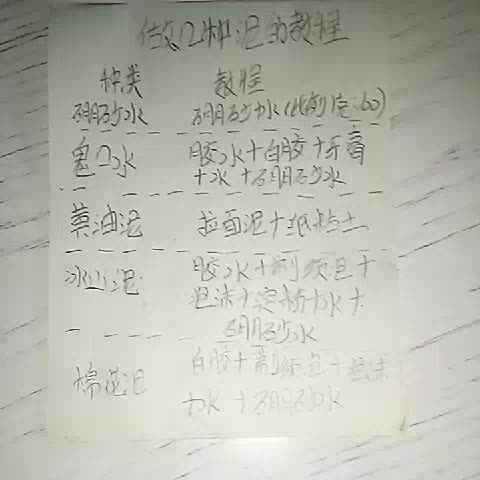 做几种泥的教程
种类 教程
硼砂水 硼砂加水(比例1:60)
鬼口水 胶水+白胶+牙膏
+水+硼砂水
黄油泥 拉面泥+纸粘土
冰山泥 胶水+剃须泡+
泡沫+淀粉加水+
硼砂水
棉花泥 白胶+剃须泡+泡沫
加水+硼砂水